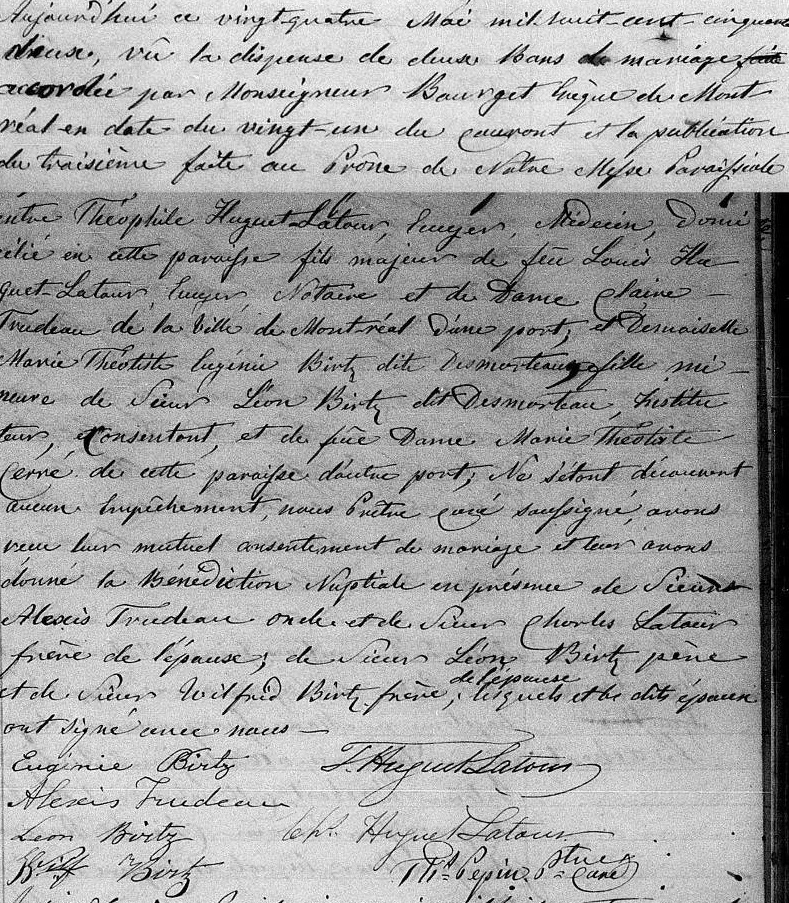 Aujourd'hui ce vingt-quatre Mai mil-huit-cent-cinquante
deux, vu la dispense de deux Bans de mariage faite
accordée par Monseigneur Bourget Evêque de Mont
réal en date du vingt-un du courant et la publication
du troisième faite au Prône de Notre Messe Paroissiale
entre Théophile Huguet-Latour, Ecuyer, Médecin, domi
cilié en cette paroisse fils majeur de feu Louis Hu
guet-Latour, Ecuyer, Notaire et de Dame Claire
Trudeau de la Ville de Montréal d'une part; et Demoiselle
Marie Théotiste Eugénie Birtz dite Desmorteau, fille mi-
neure de Sieur Léon Birtz dit Desmorteau, Institu
teur, consentant, et de feue Dame Marie Théotiste
Cerré de cette paroisse d'autre part; Ne s'étant découvert
aucun Empêchement, nous Prêtre curé soussigné, avons
reçu leur mutuel consentement de mariage et leur avons
donné la Bénédiction Nuptiale en présence de Sieurs
Alexis Trudeau oncle et de Sieur Charles Latour
frère de l'épouse; de Sieur Léon Birtz père
de l'épouse
et de Sieur Wilfrid Birtz frère; lesquels et les dits époux
ont signé avec nous-
Eugénie Birtz T. Huguet Latour
Alexis Trudeau
Leon Birtz Chs. Huguet Latour
Wilf Birtz Pepin Ptre Curé